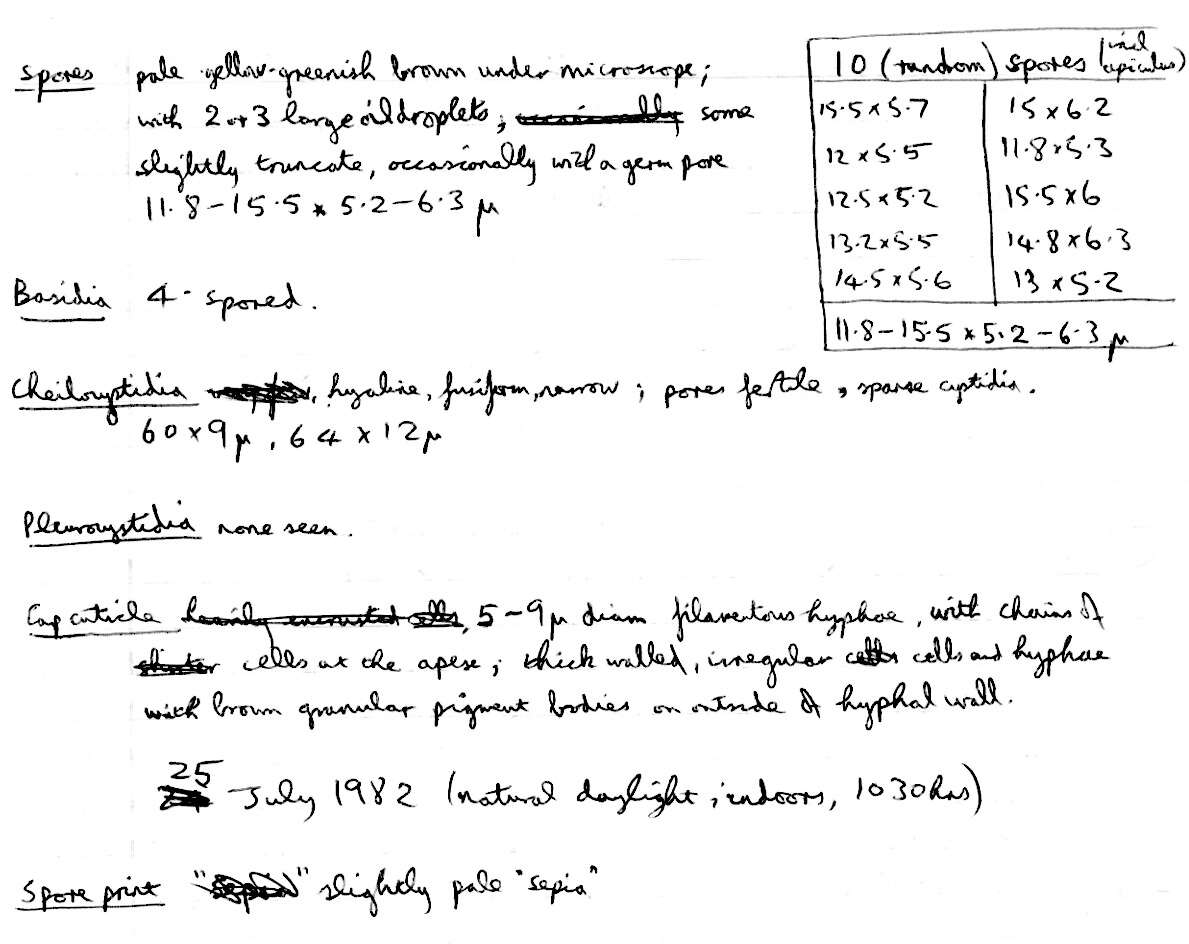 Spores pale yellow-greenish brown under microscope;
with 2 or 3 large oil droplets; occasionally some
slightly truncate, occasionally with a germ pore
11.8-15.5 x 5.2-6.3 μ
10 (random) spores (incl apiculus)
15.5 x 5.7 15 x 6.2
12 x 5.5 11.8 x 5.3
12.5 x 5.2 15.5 x 6
13.2 x 5.5 14.8 x 6.3
14.5 x 5.6 13 x 5.2
11.8-15.5 x 5.2-6.3 μ
Basidia 4-spored.
Cheilocystidia , hyaline, fusiform, narrow; pores fertile, sparse cystidia.
60 x 9μ, 64 x 12μ
Pleurocystidia none seen.
Cap cuticle heavily encrusted cells, 5-9μ diam filamentous hyphae, with chains of
cells at the apex; thick walled, irregular cells cells and hyphae
with brown granular pigment bodies on outside of hyphal wall.
25
July 1982 (natural daylight, indoors, 1030hrs)
Spore print "sepia" slightly pale "sepia"